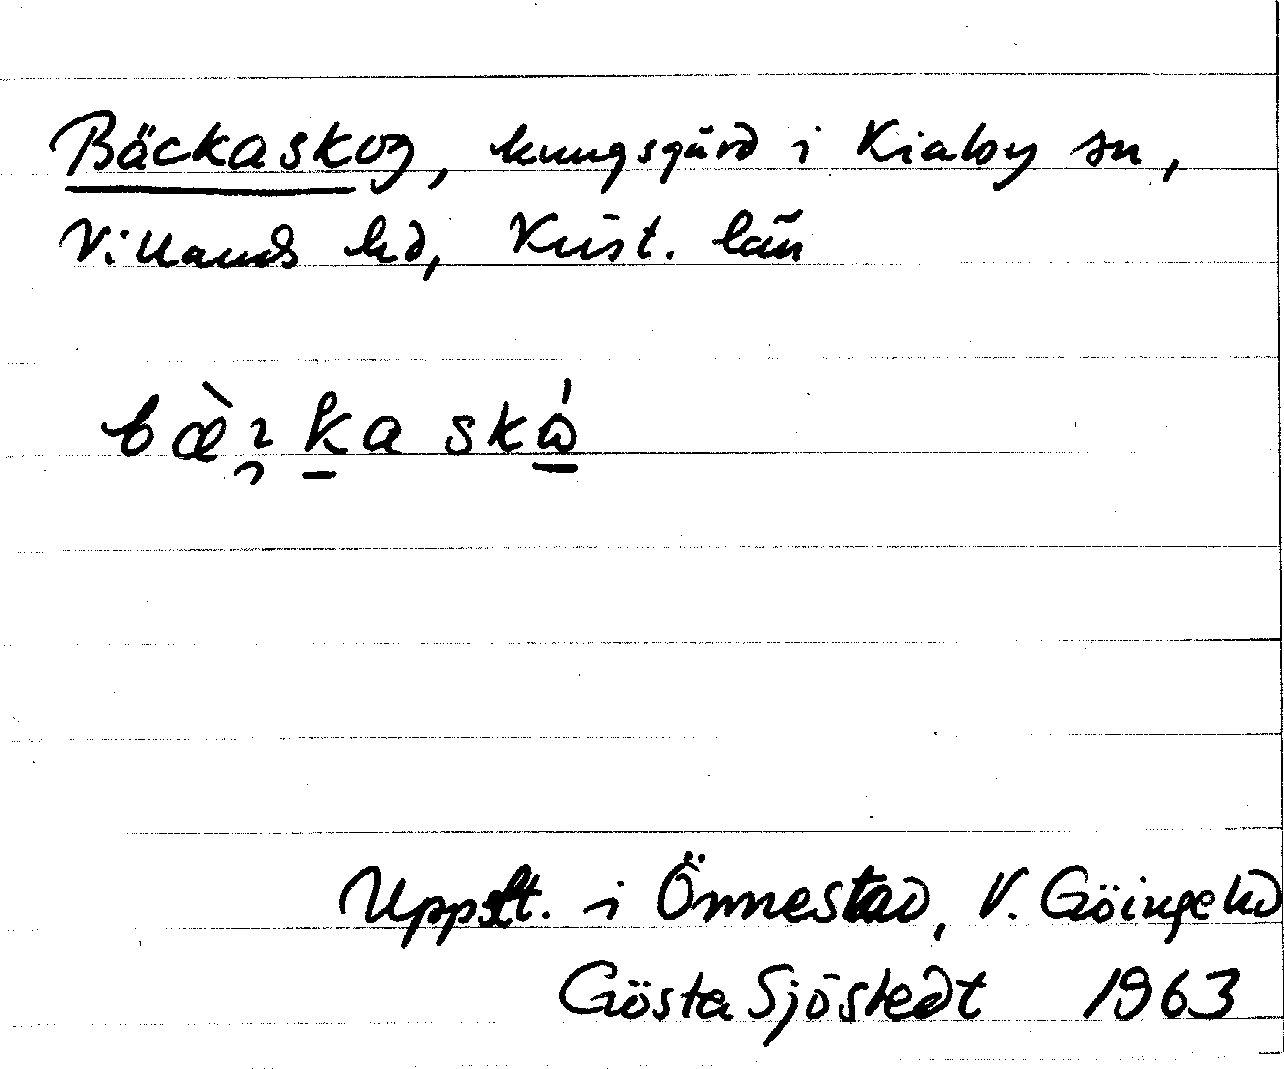 Bäckaskog, kungsgård i Kiaby sn,
Villands hd, Krist. län
Uppst. i Önnestad, V. Göinge hd
Gösta Sjöstedt 1963